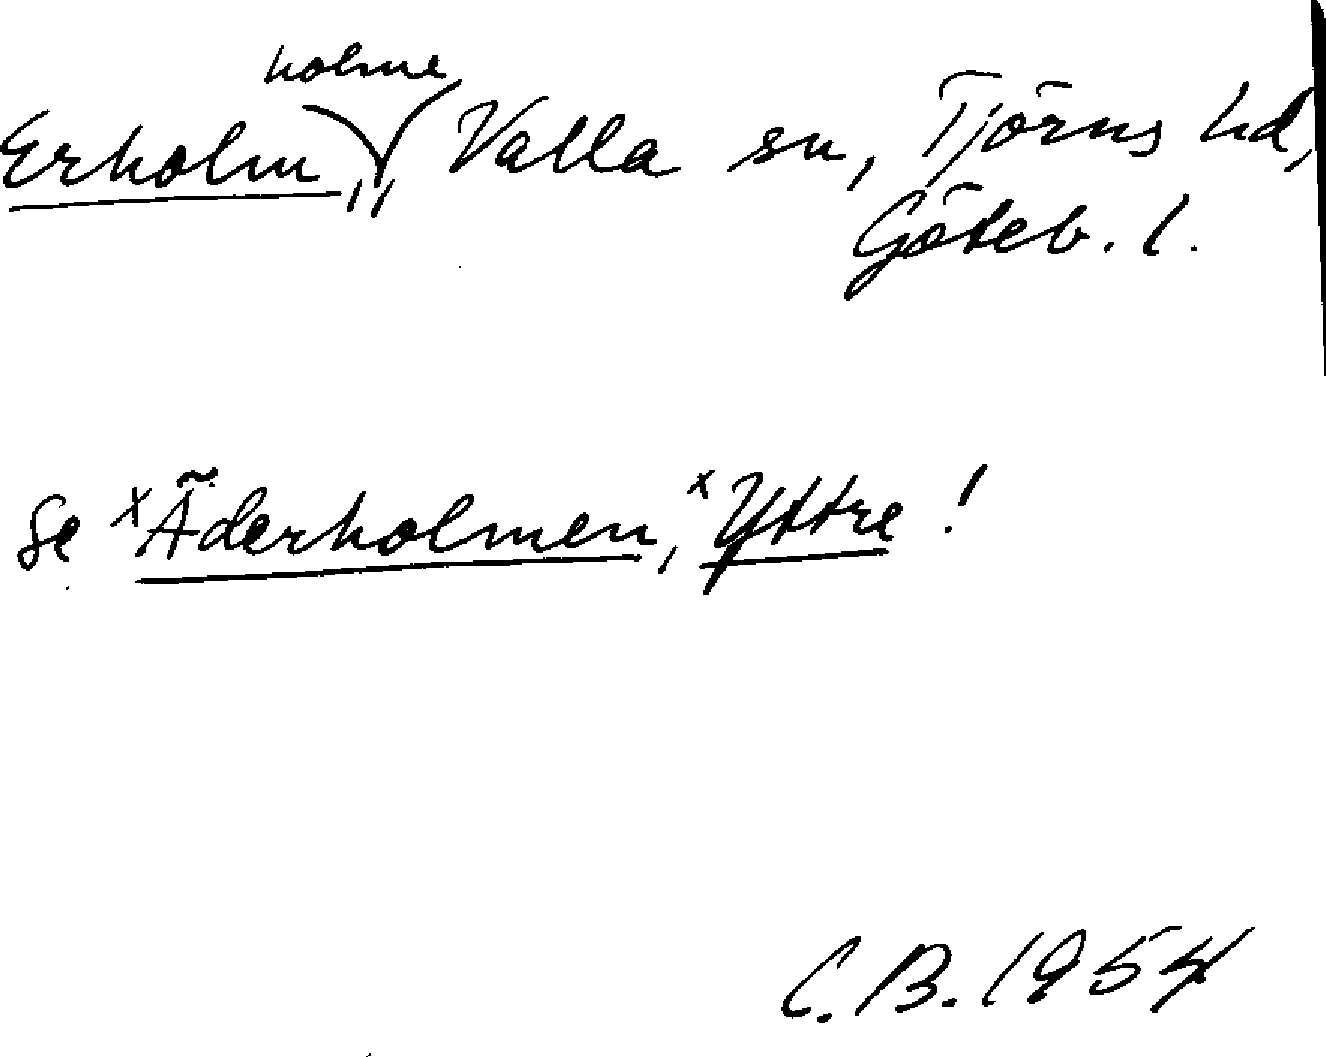 holme
Erholm,, Valla sn, Tjörns hd,
Göteb. l.
Se ˣÄderholmen, ˣYttre!
C.B. 1954